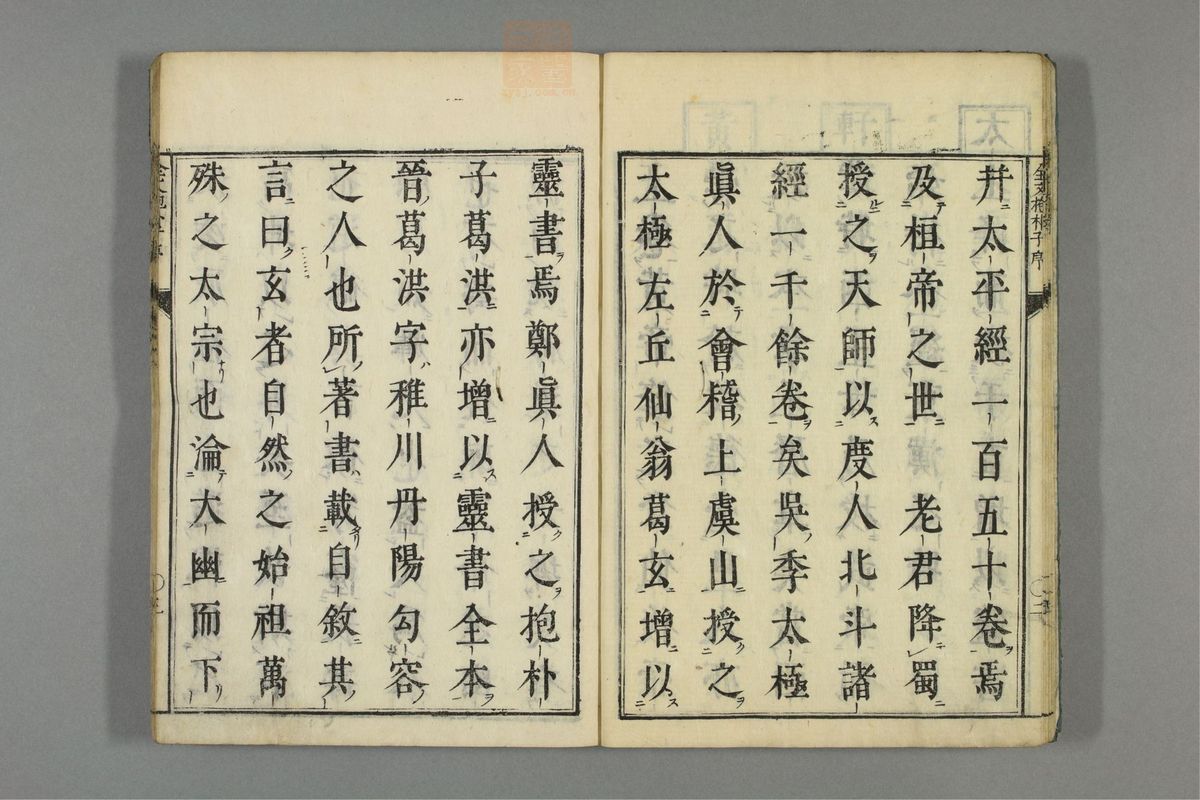 幷太平經一百五十卷焉
及桓帝之世 老君降蜀
授之天師以度人北斗諸
經一千餘卷矣吳季太極
眞人於會稽上虞山授之
太極左丘仙翁葛玄增以
靈書焉鄭眞人授之抱朴
子葛洪亦增以靈書全本
晉葛洪字稚川丹陽勾容
之人也所著書載自敘其
言曰玄者自然之始祖萬
殊之太宗也淪大幽而下